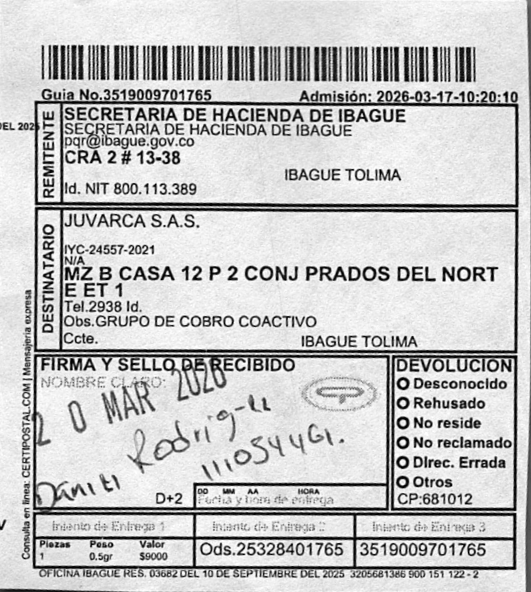 Guia No.3519009701765
Admisión: 2026-03-17-10:20:10
DEL 2025
REMITENTE
SECRETARIA DE HACIENDA DE IBAGUE
SECRETARIA DE HACIENDA DE IBAGUE
pqr@ibague.gov.co
CRA 2 # 13-38
IBAGUE TOLIMA
Id. NIT 800.113.389
DESTINATARIO
JUVARCA S.A.S.
IYC-24557-2021
N/A
MZ B CASA 12 P 2 CONJ PRADOS DEL NORT
E ET 1
Tel.2938 Id.
Obs.GRUPO DE COBRO COACTIVO
Ccte.
IBAGUE TOLIMA
Consulta en linea: CERTIPOSTAL.COM | Mensajeria expresa
FIRMA Y SELLO DE RECIBIDO
NOMBRE CLARO:
20 MAR 2026
Daniel Rodrig
D+2
DD MM AA HORA
Fecha y hora de entrega
DEVOLUCION
Desconocido
Rehusado
No reside
No reclamado
Direc. Errada
Otros
CP:681012
Intento de Entrega 1
Intento de Entrega 2
Intento de Entrega 3
Piezas Peso Valor
1 0.5gr $9000
Ods.25328401765
3519009701765
OFICINA IBAGUE RES. 03682 DEL 10 DE SEPTIEMBRE DEL 2025 3205681386 900 151 122 - 2